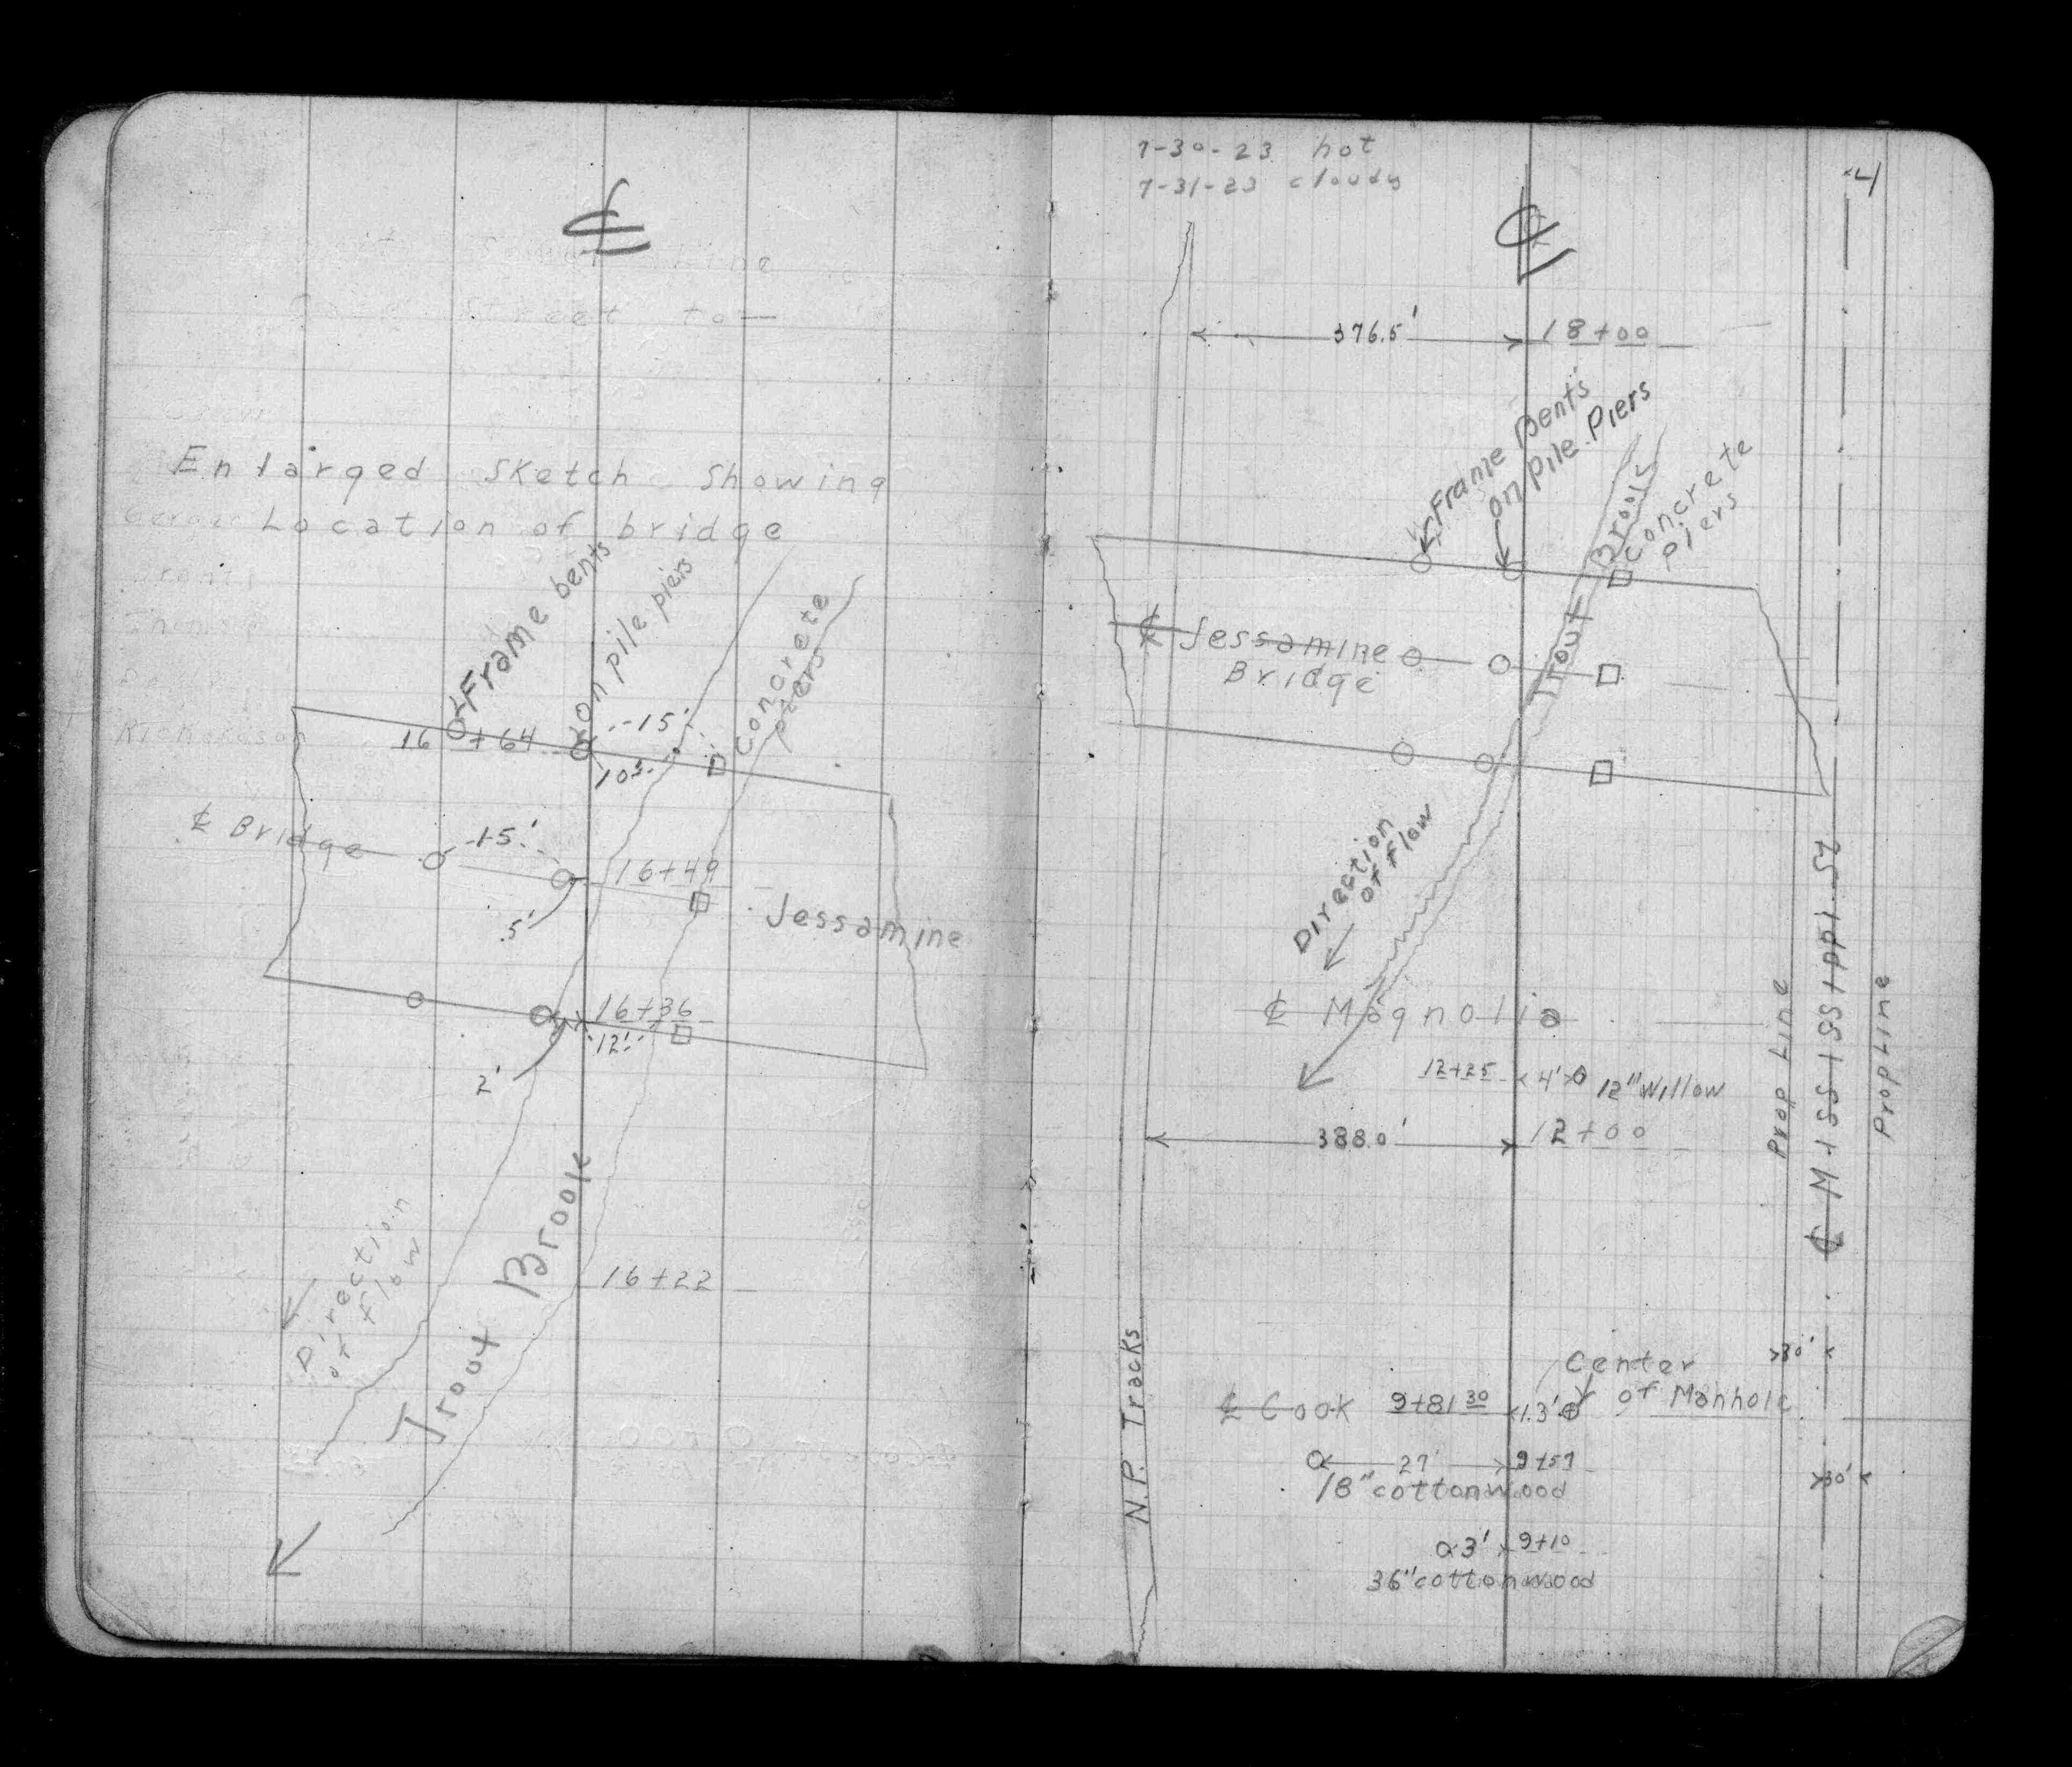 ℄
Enlarged Sketch Showing
Location of bridge
Frame bents
on pile piers
Concrete
piers
16+64
15'
10'
℄ Bridge
15'
16+49
.5'
Jessamine
16+36
12'
2'
Trout Brook
16+22
Direction
of flow
7-30-23 hot
7-31-23 cloudy
4
℄
376.5'
18+00
Frame Bents
on Pile Piers
Concrete
piers
Trout Brook
℄ Jessamine
Bridge
Direction
of Flow
℄ Magnolia
12+25
4'
12" Willow
388.0'
12+00
Prop Line
℄ Mississippi St.
Prop Line
N.P. Tracks
30'
Center
of Manhole
℄ Cook
9+81 30
1.3'
27'
9+57
18" cottonwood
30'
3'
9+10
36" cottonwood